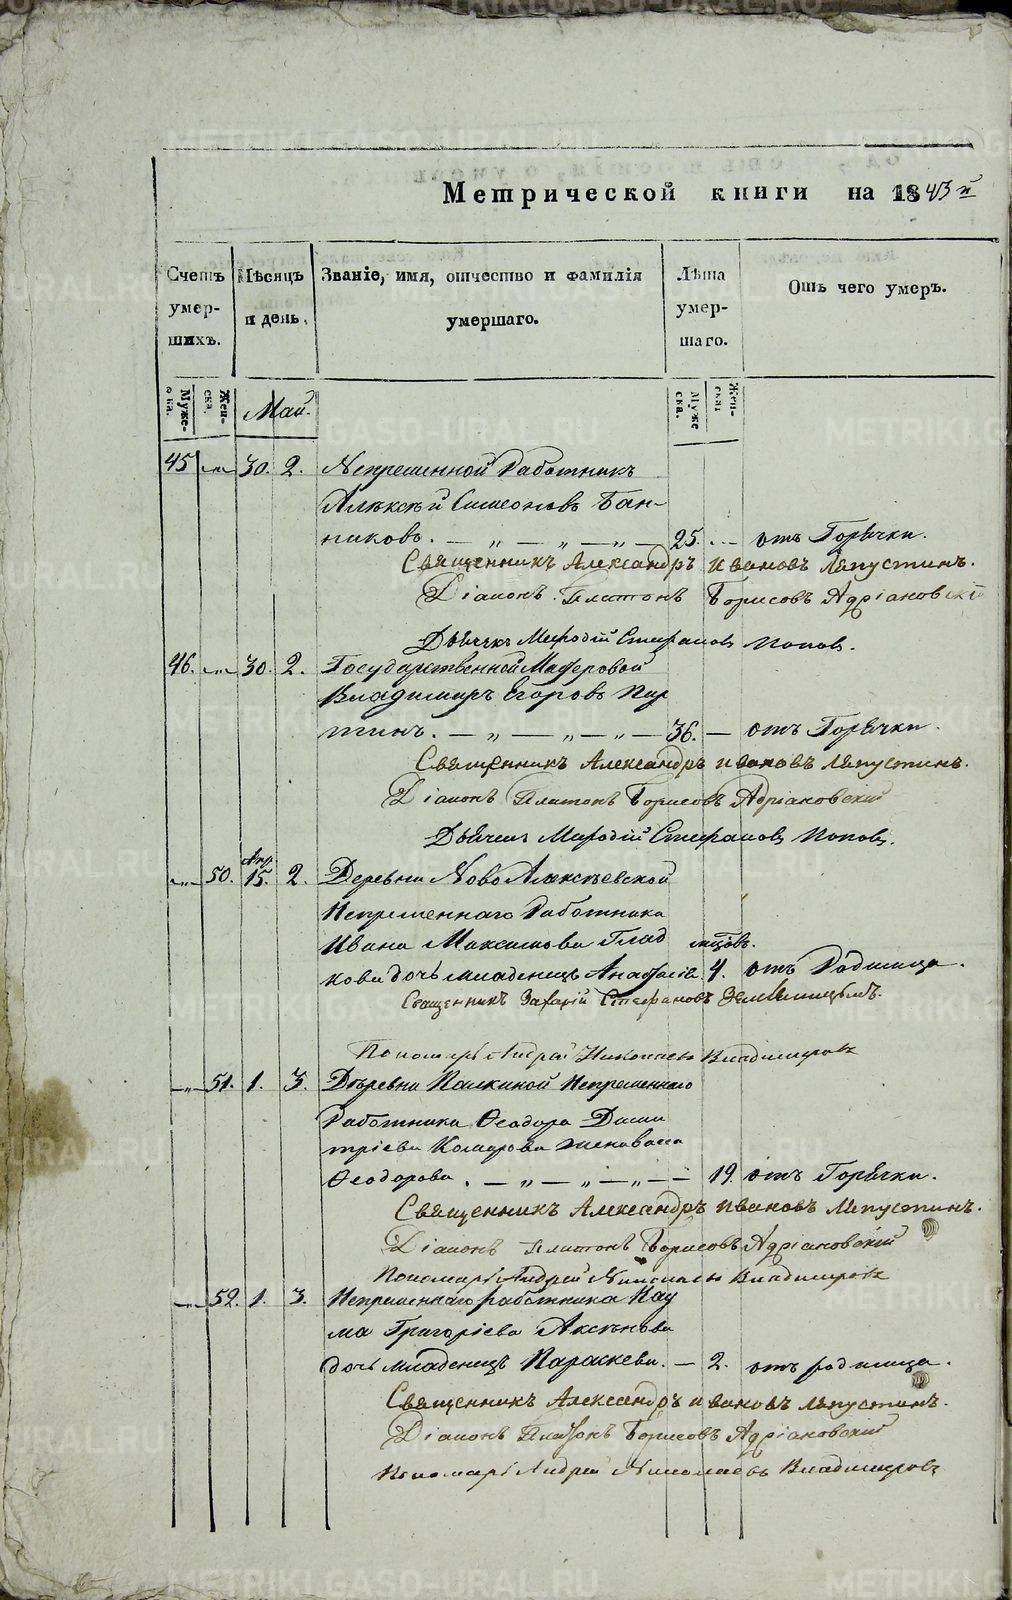 Метрической книги на 1843 й
Счетъ умер- шихъ.
Мѣсяцъ и день.
Званіе, имя, отчество и фамилія умершаго.
Лѣта умер- шаго.
Отъ чего умеръ.
Муже- ска.
Жен- ска.
Май.
Муже ска.
Жен- ска
45 — 30. 2. Непременной Работникъ
Алѣксѣй Симеоновъ Бан-
никовъ. — „ — „ — „ — 25. — отъ Горячки.
Священникъ Александръ Ивановъ Ляпустинъ.
Діаконъ Платонъ Борисовъ Адріановскій
Дьячекъ Мефодій Стефановъ Поповъ.
46. — 30. 2. Государственной Мастеровой
Владимиръ Егоровъ Пир
тинъ. — „ — „ — „ — 36. — отъ Горячки.
Священникъ Александръ Ивановъ Ляпустинъ.
Діаконъ Платонъ Борисовъ Адріановскій
Дьячекъ Мефодій Стефановъ Поповъ.
Апр
— 50. 15. 2. Деревни Ново Алексѣевской
Непременнаго Работника
Ивана Максимова Глад мцовъ.
кова дочь младенецъ Анастасія 4. отъ Родимца.
Священникъ Захарій Стефановъ
Пономарь Андрей Николаевъ Владимировъ
— 51. 1. 3. Деревни Палкиной Непременнаго
Работника Ѳеодора Дими
тріева Комарова жена
Ѳеодорова. — „ — „ — „ — 19. отъ Горячки.
Священникъ Александръ Ивановъ Ляпустинъ.
Діаконъ Платонъ Борисовъ Адріановскій
Пономарь Андрей Николаевъ Владимировъ
— 52. 1. 3. Непременнаго работника Нау
ма Григоріева Аксѣнова
дочь младенецъ Параскева. — 2. отъ родимца.
Священникъ Александръ Ивановъ Ляпустинъ.
Діаконъ Платонъ Борисовъ Адріановскій
Пономарь Андрей Николаевъ Владимировъ
METRIKI.GASO-URAL.RU